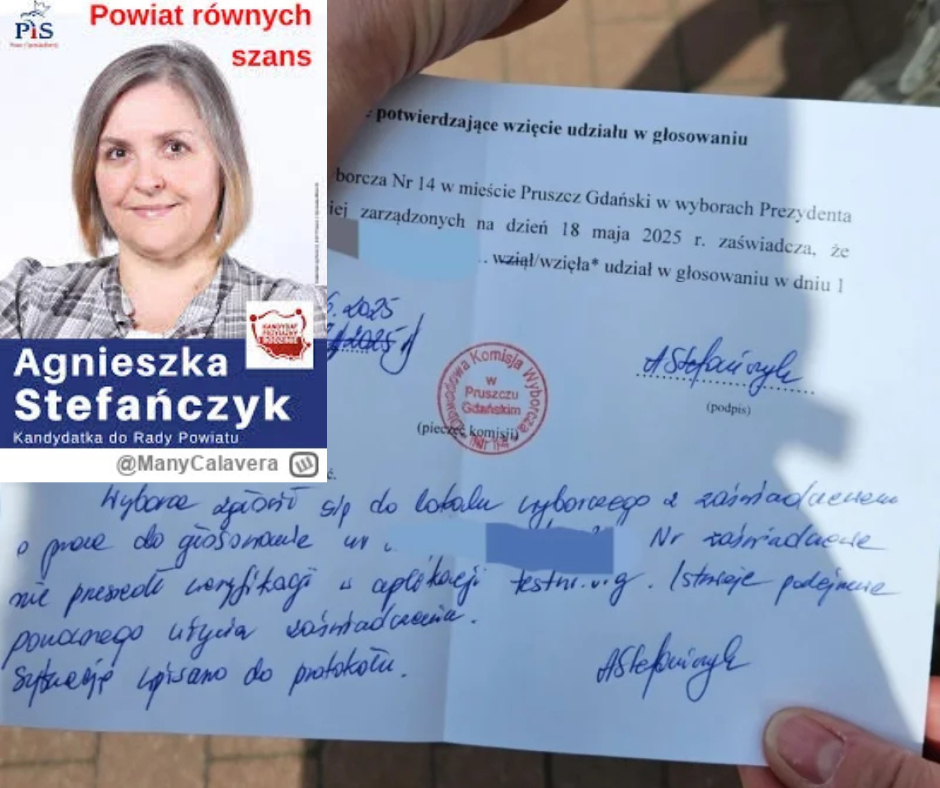 PiS
Prawo i Sprawiedliwość
Powiat równych
szans
KANDYDAT
PRZYJAZNY
RODZINIE
Agnieszka
Stefańczyk
Kandydatka do Rady Powiatu
@ManyCalavera
potwierdzające wzięcie udziału w głosowaniu
borcza Nr 14 w mieście Pruszcz Gdański w wyborach Prezydenta
iej zarządzonych na dzień 18 maja 2025 r. zaświadcza, że
.. wziął/wzięła* udział w głosowaniu w dniu 1
.2025
2025
AStefańczyk
(podpis)
Obwodowa Komisja Wyborcza
w
Pruszczu
Gdańskim
Nr 14
(pieczęć komisji)
Wyborca zgłosił się do lokalu wyborczego z zaświadczeniem
o prawie do głosowania nr Nr zaświadczenia
nie przeszedł weryfikacji w aplikacji Istnieje podejrzenie
ponownego użycia zaświadczenia.
Sytuację wpisano do protokołu.
AStefańczyk